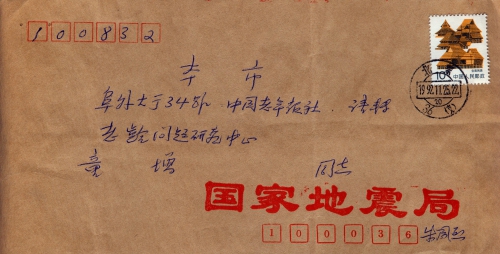 100832
本市
阜外大亍34号. 中国老年报社. 请转
老龄问题研究中心
童增 同志
国家地震局
100036
10分 中国人民邮政
北京
1992.11.25.22